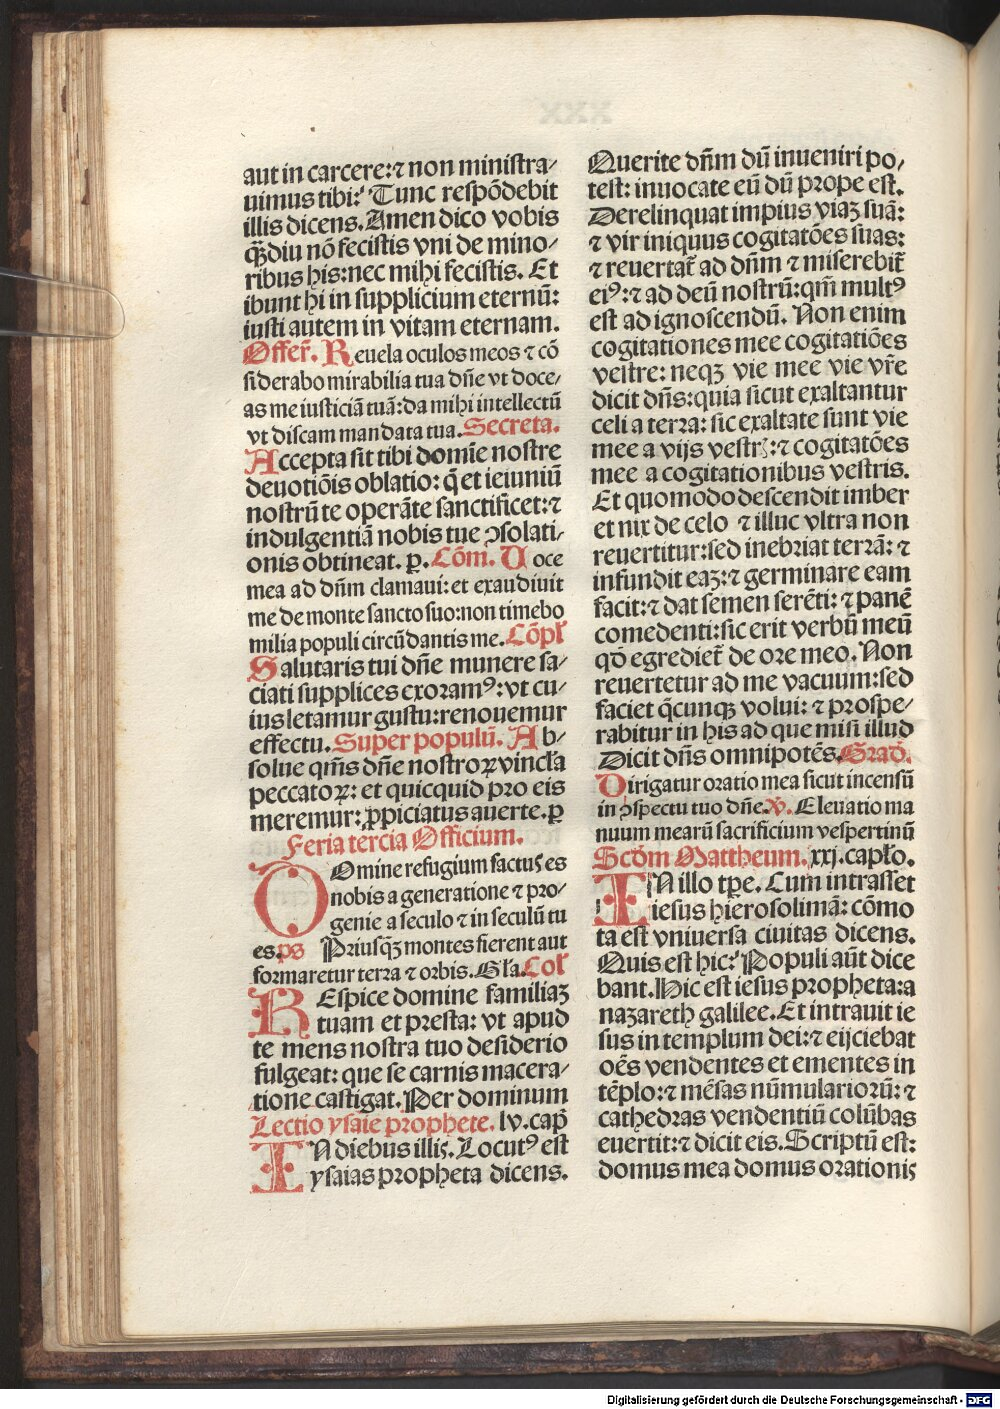 aut in carcere:⁊ non ministra⸗
uimus tibi: Tunc respōdebit
illis dicens. Amen dico vobis
qͣ̄diu nō fecistis vni de mino⸗
ribus his:nec mihi fecistis. Et
ibunt hi in supplicium eternū:
iusti autem in vitam eternam.
Offer̄. Reuela oculos meos ⁊ cō
siderabo mirabilia tua dn̄e vt doce⸗
as me iusticiā tuā:da mihi intellectū
vt discam mandata tua. Secreta.
Accepta sit tibi domīe nostre
deuotiōis oblatio: q̄ et ieiuniū
nostrū te operāte sanctificet:⁊
indulgentiā nobis tue ꝯsolati⸗
onis obtineat. p̱. Cōm. Uoce
mea ad dn̄m clamaui: et exaudiuit
me de monte sancto suo:non timebo
milia populi circūdantis me. Cōpł
Salutaris tui dn̄e munere sa⸗
ciati supplices exoramꝰ: vt cu⸗
ius letamur gustu:renouemur
effectu. Super populū. Ab⸗
solue qm̄s dn̄e nostroꝝ vincła
peccatoꝝ: et quicquid pro eis
meremur: ꝓpiciatus auerte. p̱
Feria tercia Officium.
DOmine refugium factus es
nobis a generatione ⁊ pro⸗
genie a seculo ⁊ in seculū tu
es. ps Priusqͣ̄ꝫ montes fierent aut
formaretur terra ⁊ orbis. Gła. Coł
REspice domine familiaꝫ
tuam et presta: vt apud
te mens nostra tuo desiderio
fulgeat: que se carnis macera⸗
tione castigat. Per dominum
Lectio ysaie prophete. lv. cap̄
IN diebus illis. Locutꝰ est
ysaias propheta dicens.
Querite dn̄m dū inueniri po⸗
test: inuocate eū dū prope est.
Derelinquat impius viaꝫ suā:
⁊ vir iniquus cogitatōes suas:
⁊ reuertat̄ ad dn̄m ⁊ miserebit̄
eiꝰ:⁊ ad deū nostrū:qm̄ multꝰ
est ad ignoscendū. Non enim
cogitationes mee cogitatiōes
vestre: neqꝫ vie mee vie vr̄e
dicit dn̄s:quia sicut exaltantur
celi a terra: sic exaltate sunt vie
mee a vijs vestrꝭ:⁊ cogitatōes
mee a cogitationibus vestris.
Et quomodo descendit imber
et nix de celo ⁊ illuc vltra non
reuertitur:sed inebriat terrā: ⁊
infundit eaꝫ:⁊ germinare eam
facit:⁊ dat semen serēti: ⁊ panē
comedenti:sic erit verbū meū
qō egrediet̄ de ore meo. Non
reuertetur ad me vacuum:sed
faciet q̄cunqꝫ volui: ⁊ prospe⸗
rabitur in his ad que misi illud
Dicit dn̄s omnipotēs. Grad̄.
Dirigatur oratio mea sicut incensū
in ꝯspectu tuo dn̄e. v̄. Eleuatio ma
nuum mearū sacrificium vespertinū
Scd̄m Mattheum. xxj. capło.
IN illo tp̄e. Cum intrasset
iesus hierosolimā: cōmo
ta est vniuersa ciuitas dicens.
Quis est hic: Populi aūt dice
bant. Hic est iesus propheta:a
nazareth galilee. Et intrauit ie
sus in templum dei:⁊ eijciebat
oēs vendentes et ementes in
tēplo:⁊ mēsas nūmulariorū: ⁊
cathedras vendentiū colūbas
euertit:⁊ dicit eis. Scriptū est:
domus mea domus orationis
Digitalisierung gefördert durch die Deutsche Forschungsgemeinschaft - DFG